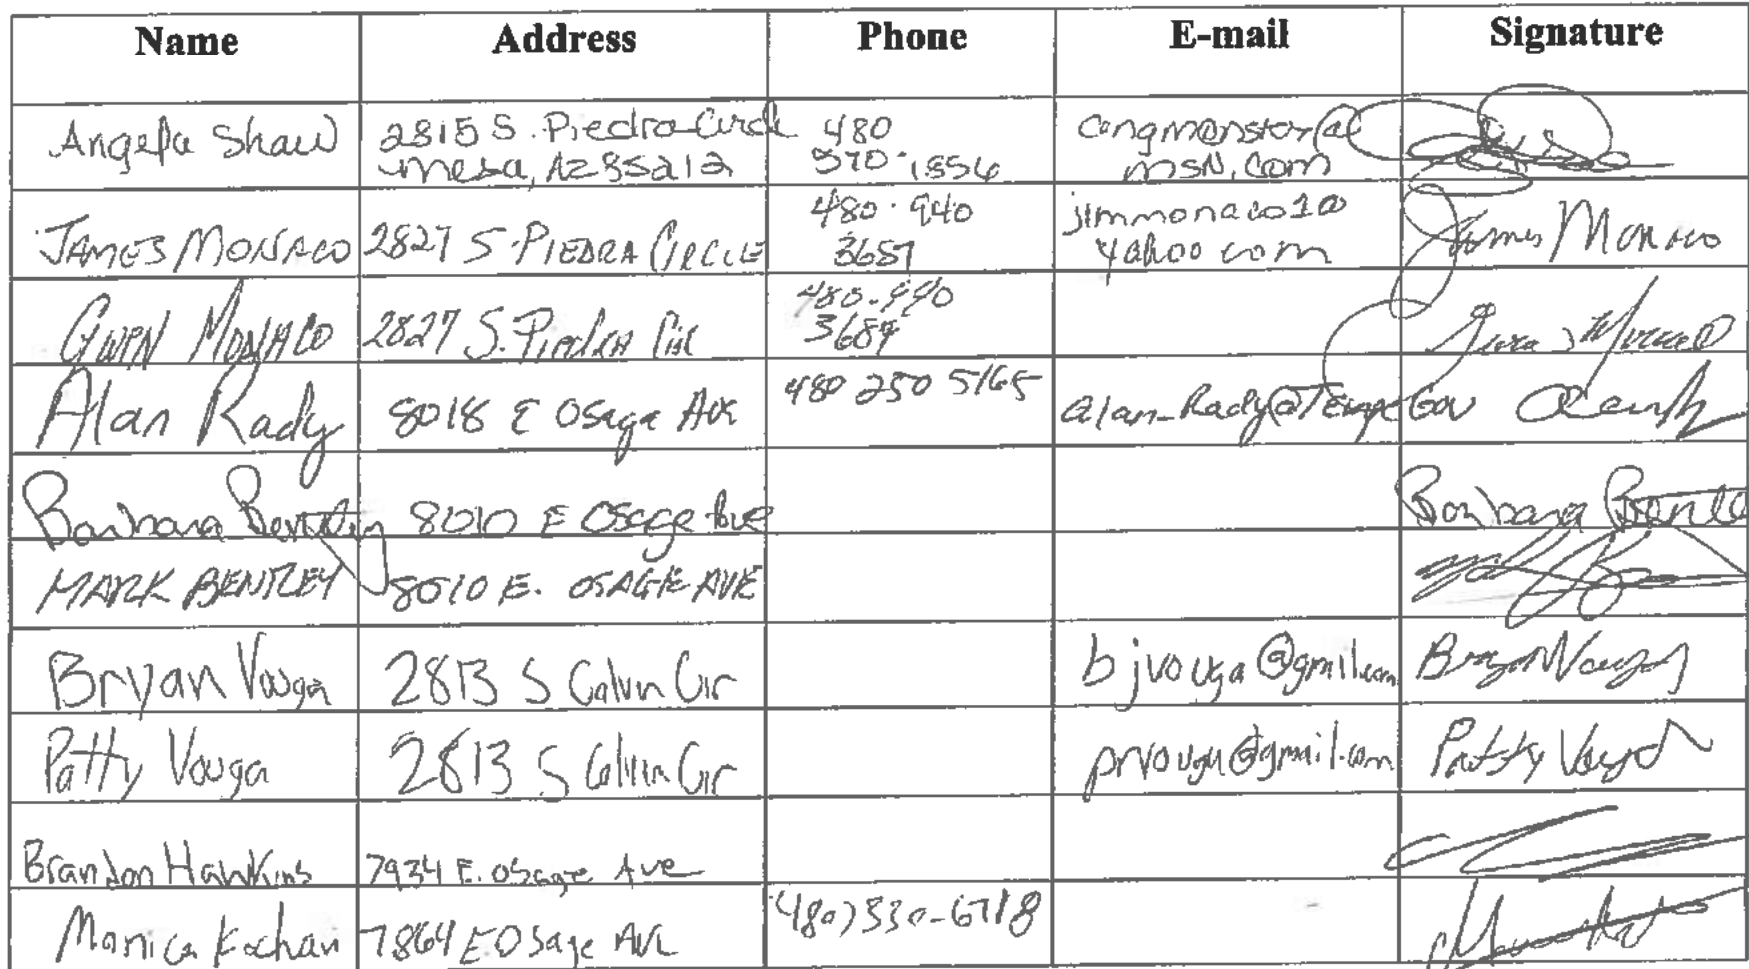 Name Address Phone E-mail Signature
Angela Shaw 2815 S. Piedra Circle 480
mesa, AZ 85212 570.1556 msN.com
JAMES MONACO 2827 S. PIEDRA CIRCLE 480.940 jimmonaco1@ James Monaco
3687 yahoo com
GWEN MONACO 2827 S. Piedra Cir 480.940
3687
Alan Rady 8018 E Osage Ave 480 250 5165 alan_Rady@Tempe Gov
Barbara Bentley 8010 E Osage Ave Barbara Bentle
MARK BENTLEY 8010 E. OSAGE AVE
Bryan Vouga 2813 S Calvin Cir bjvouga@gmil.com Bryan Vouga
Patty Vouga 2813 S Calvin Cir prvouga@gmail.com Patty Vouga
Brandon Hawkins 7934 E. Osage Ave
Monica Kochan 7864 E Osage Ave 480) 330-6718